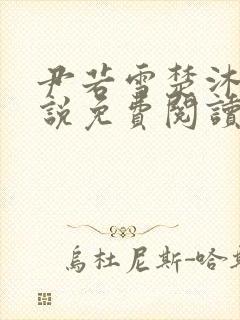 尹若雪楚沐
說免費閱讀
烏杜尼斯-哈